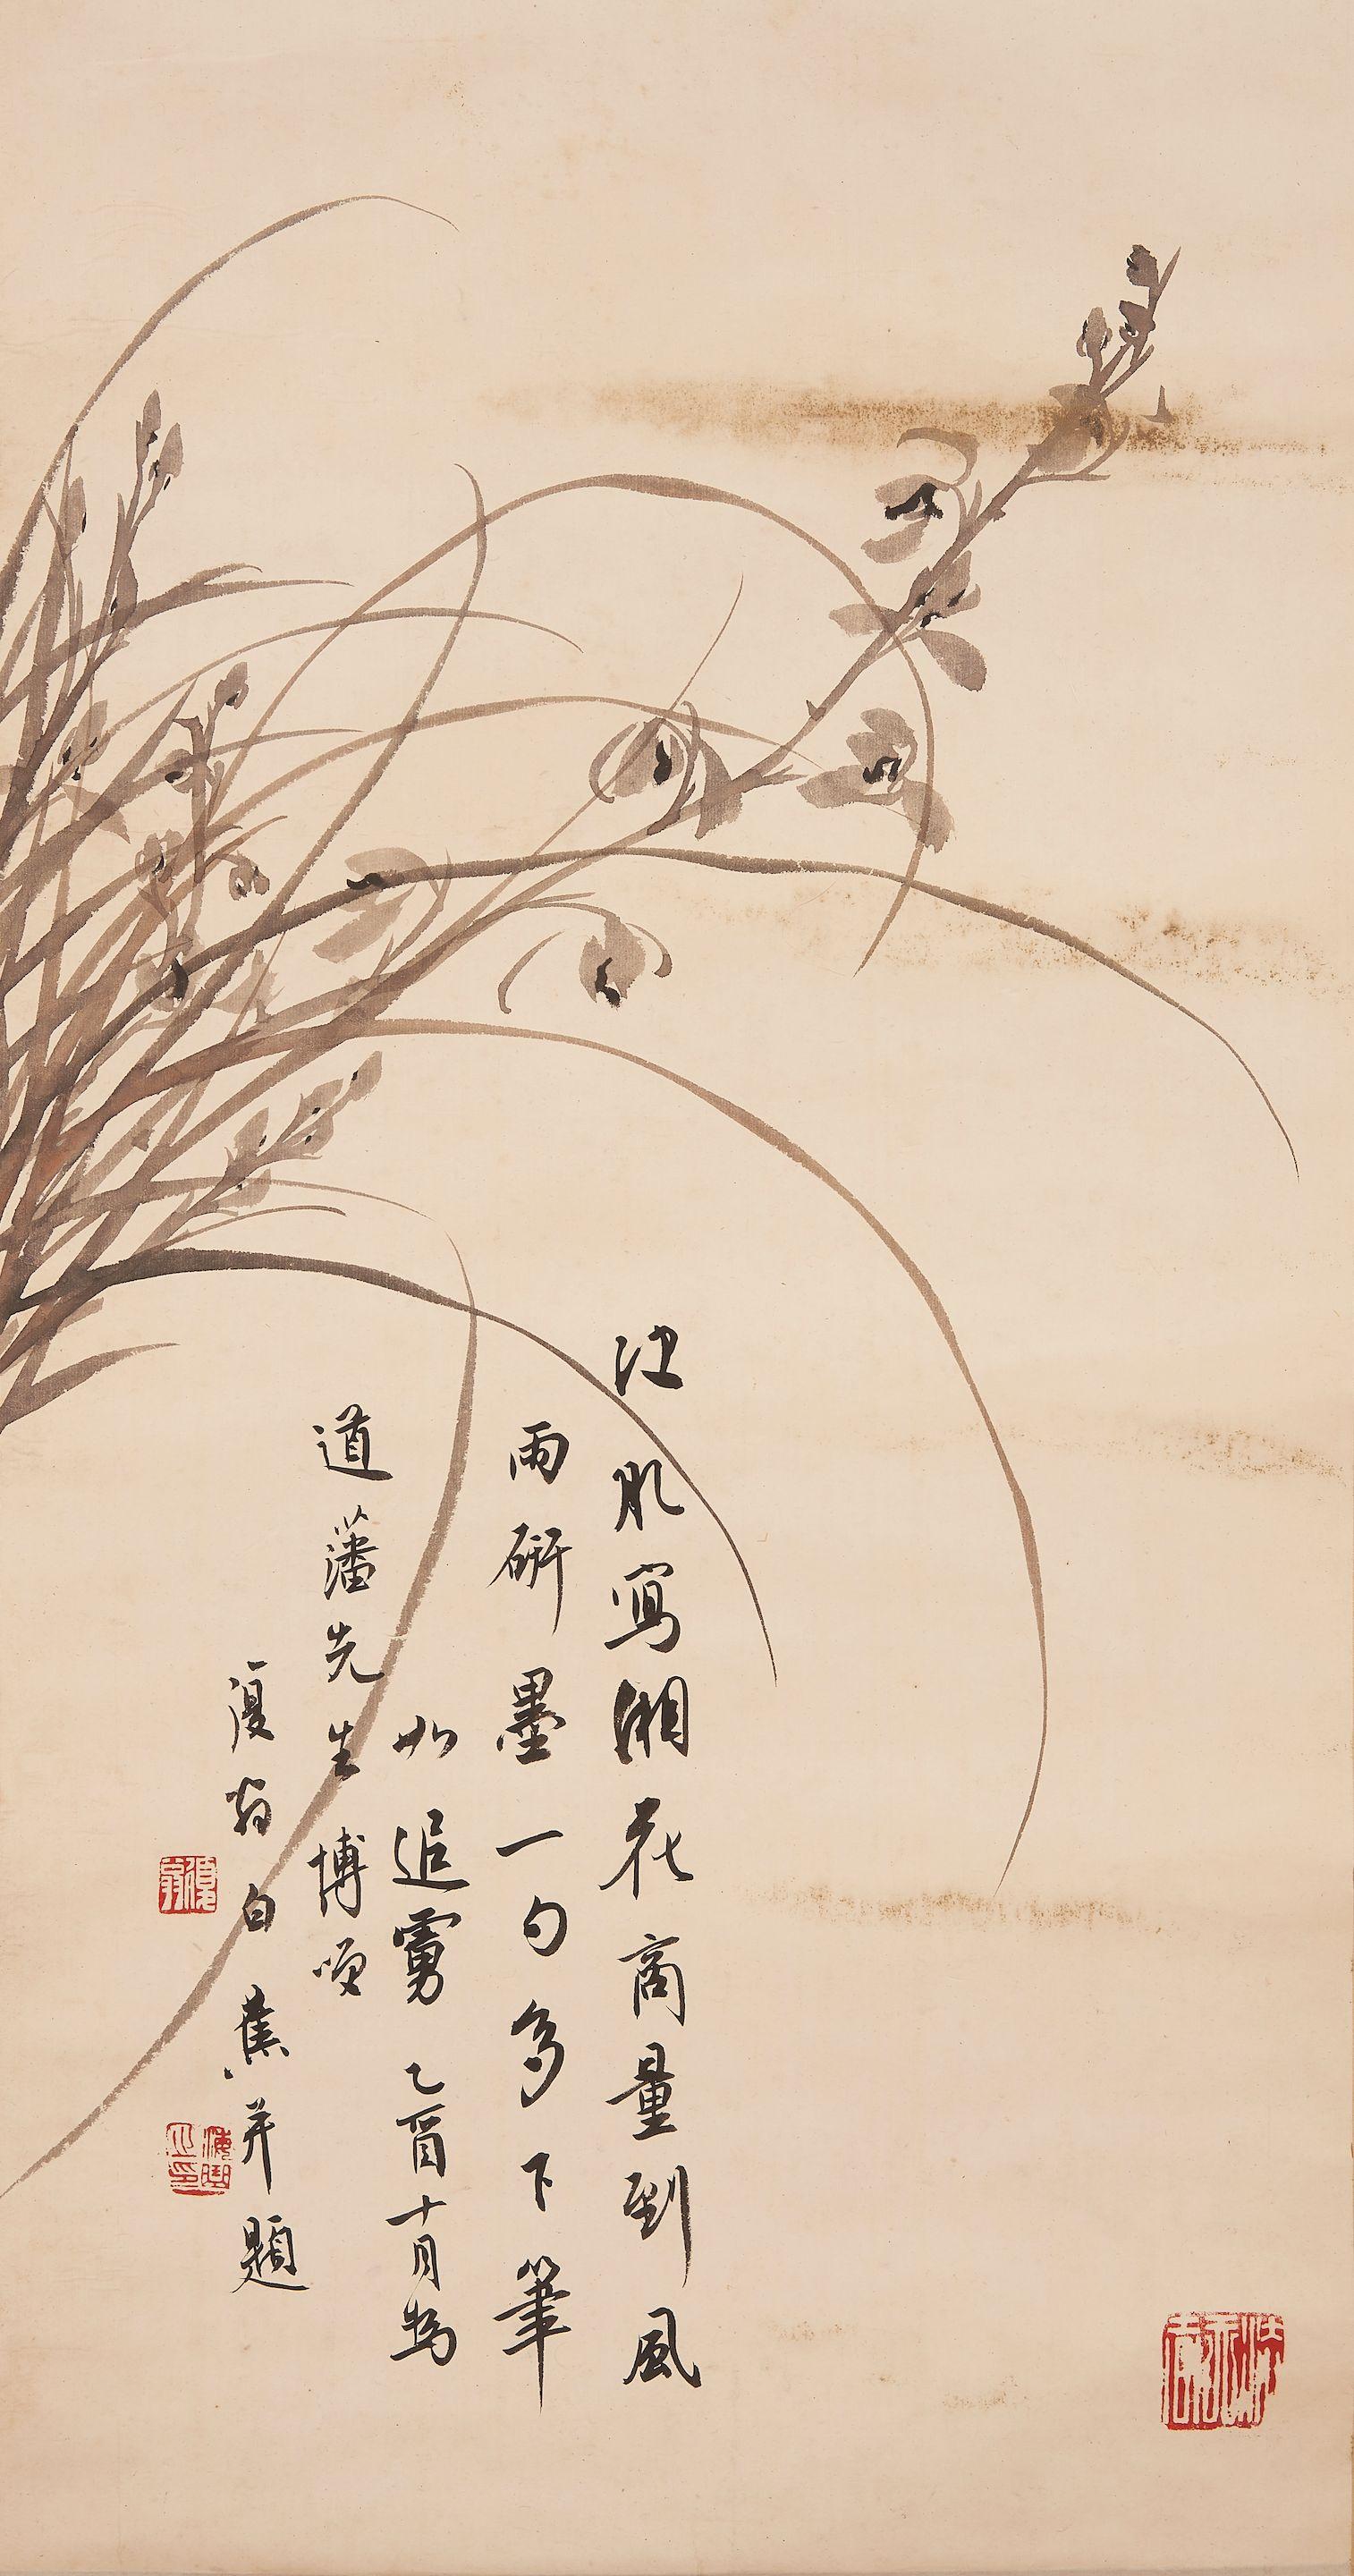 肌寫湘花商量到風
雨研墨一勺多下筆
如追虜 乙酉十月為
道藩先生博哂
復翁白蕉并題
復翁